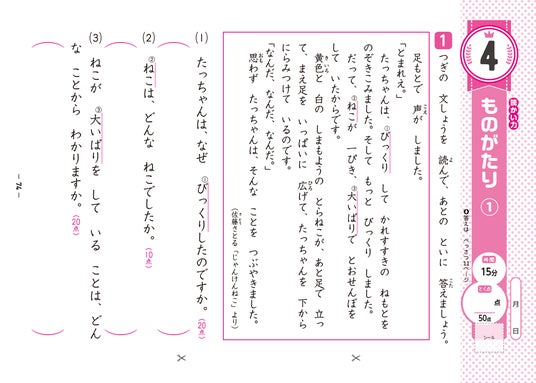 4
読かい力
ものがたり ①
月 日
時間 15分
とく点 点 50点
シール
●答えは、べっさつ11ページ
1 つぎの 文しょうを 読んで、あとの といに 答えましょう。
足もとで 声が しました。
「とまれえ。」
たっちゃんは、①びっくり して かれすすきの ねもとを
のぞきこみました。そして もっと びっくり しました。
だって、②ねこが 一ぴき、③大いばりで とおせんぼを
して いたからです。
黄色と 白の しまもようの とらねこが、あと足で 立っ
て、まえ足を いっぱいに 広げて、たっちゃんを 下から
にらみつけて いるのです。
「なんだ、なんだ、なんだ。」
思わず たっちゃんは、そんな ことを つぶやきました。
(佐藤さとる「じゃんけんねこ」より)
(1) たっちゃんは、なぜ ①びっくりしたのですか。(20点)
(2) ②ねこは、どんな ねこでしたか。(10点)
(3) ねこが ③大いばりを して いる ことは、どん
な ことから わかりますか。(20点)